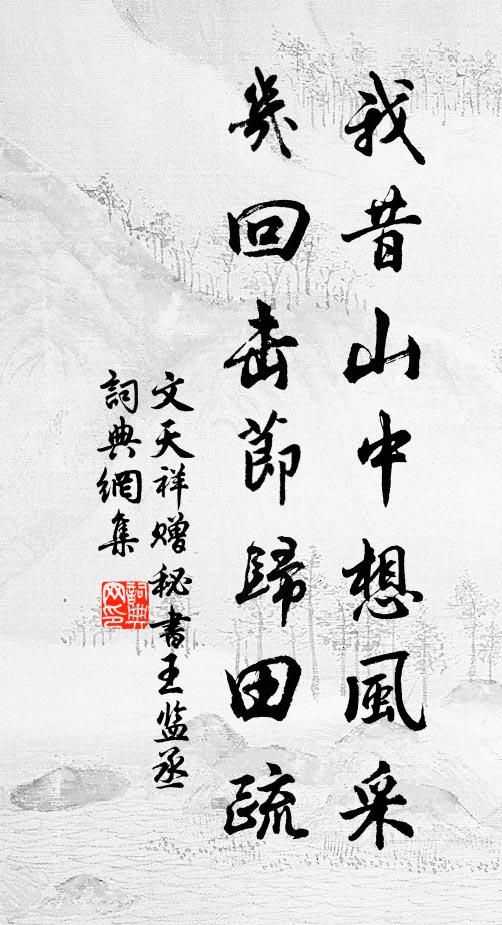 我昔山中想風采
幾回击節歸田疏
文天祥赠秘書王监丞
詞典網集
詞典
网印